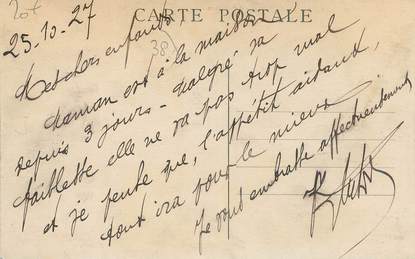 CARTE POSTALE
25.10.27
38
Mes chers enfants
Maman est à la maison
depuis 3 jours - Malgré sa
faiblette elle ne va pas trop mal
et je pense que, l'appétit aidant,
tout ira pour le mieux
Je vous embrasse affectueusement